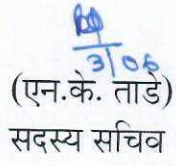 3/06
(एन.के. ताडे)
सदस्य सचिव